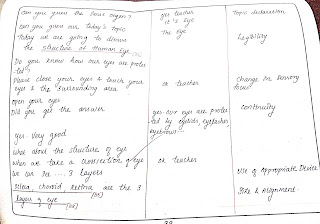 Can you guess the Sense organ?
yes teacher
Topic declaration
it's Eye
Can you guess our today's topic
The Eye
Today we are going to discuss
Legibility
the structure of Human Eye
Do you know how our eyes are protec
ted?
Please close your eyes & touch your
or teacher
Change in Sensory
eyes & the surrounding area
focus
open your eyes
continuity
Did you get the answer
yes our eyes are protec
ted by eyelids, eyelashes,
eyebrows
yes Very good
What about the structure of eye
When we take a crosssection of eye
or teacher
we can see .... 3 layers
Use of Appropriate Device
[BB]
Sclera, choroid, Retina are the 3
BBk & Assignment
layers of eye
[BB]